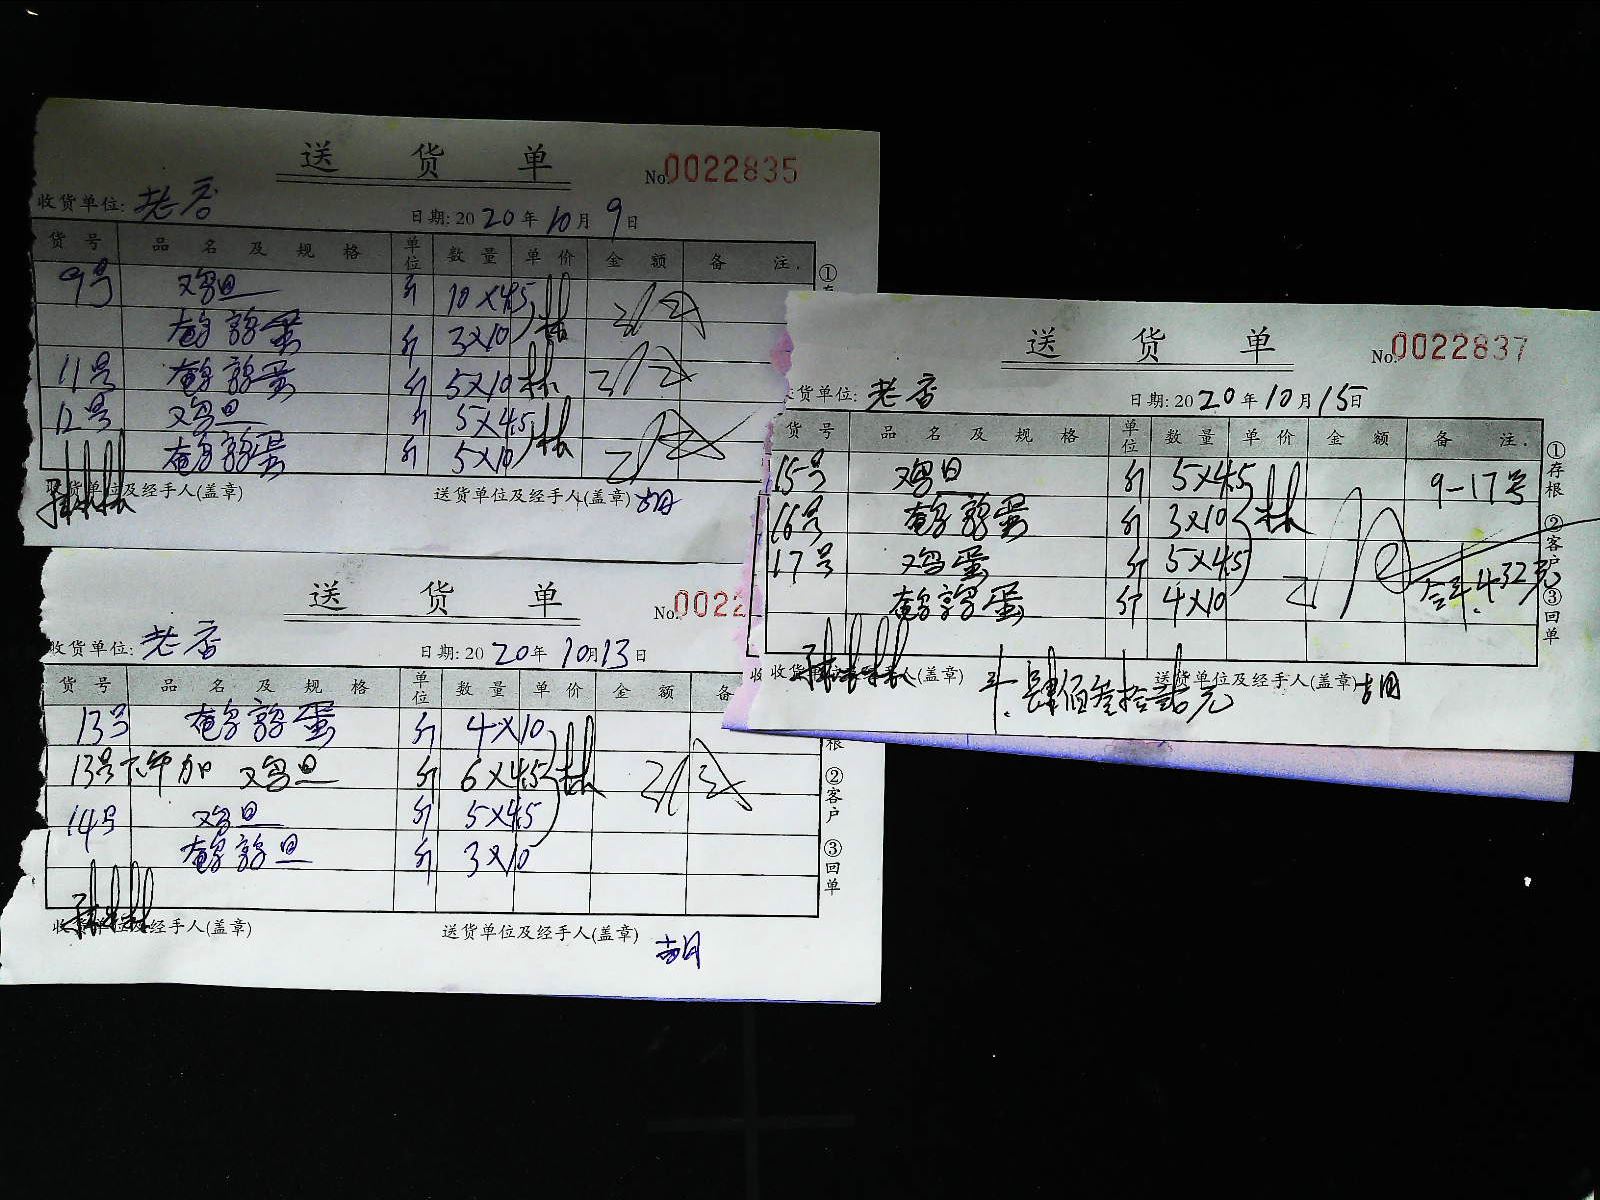 送货单
No.0022835
收货单位: 老店 日期: 2020年10月9日
货号 品名及规格 单位 数量 单价 金额 备注.
9号 鸡旦 斤 10×4.5
鹌鹑蛋 斤 3×10
11号 鹌鹑蛋 斤 5×10
12号 鸡旦 斤 5×4.5
鹌鹑蛋 斤 5×10
收货单位及经手人(盖章) 送货单位及经手人(盖章) 胡
送货单
No.0022
收货单位: 老店 日期: 2020年10月13日
货号 品名及规格 单位 数量 单价 金额 备
13号 鹌鹑蛋 斤 4×10
13号下午加 鸡旦 斤 6×4.5
14号 鸡旦 斤 5×4.5
鹌鹑旦 斤 3×10
根 ②客户 ③回单
收货单位及经手人(盖章) 送货单位及经手人(盖章) 胡
送货单
No.0022837
货单位: 老店 日期: 2020年10月15日
货号 品名及规格 单位 数量 单价 金额 备注.
15号 鸡旦 斤 5×4.5 9-17号
16号 鹌鹑蛋 斤 3×10
17号 鸡蛋 斤 5×4.5
鹌鹑蛋 斤 4×10 合计.432元
①存根 ②客户 ③回单
收货单位及经手人(盖章) 送货单位及经手人(盖章) 胡
计.肆佰叁拾贰元